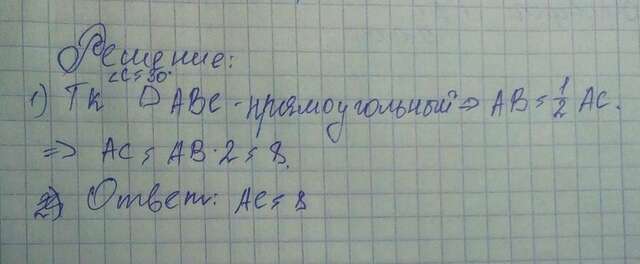 Решение:
∠C = 30°
1) Тк △ ABC - прямоугольный => AB = 1/2 AC.
=> AC = AB · 2 = 8.
2) Ответ: AC = 8